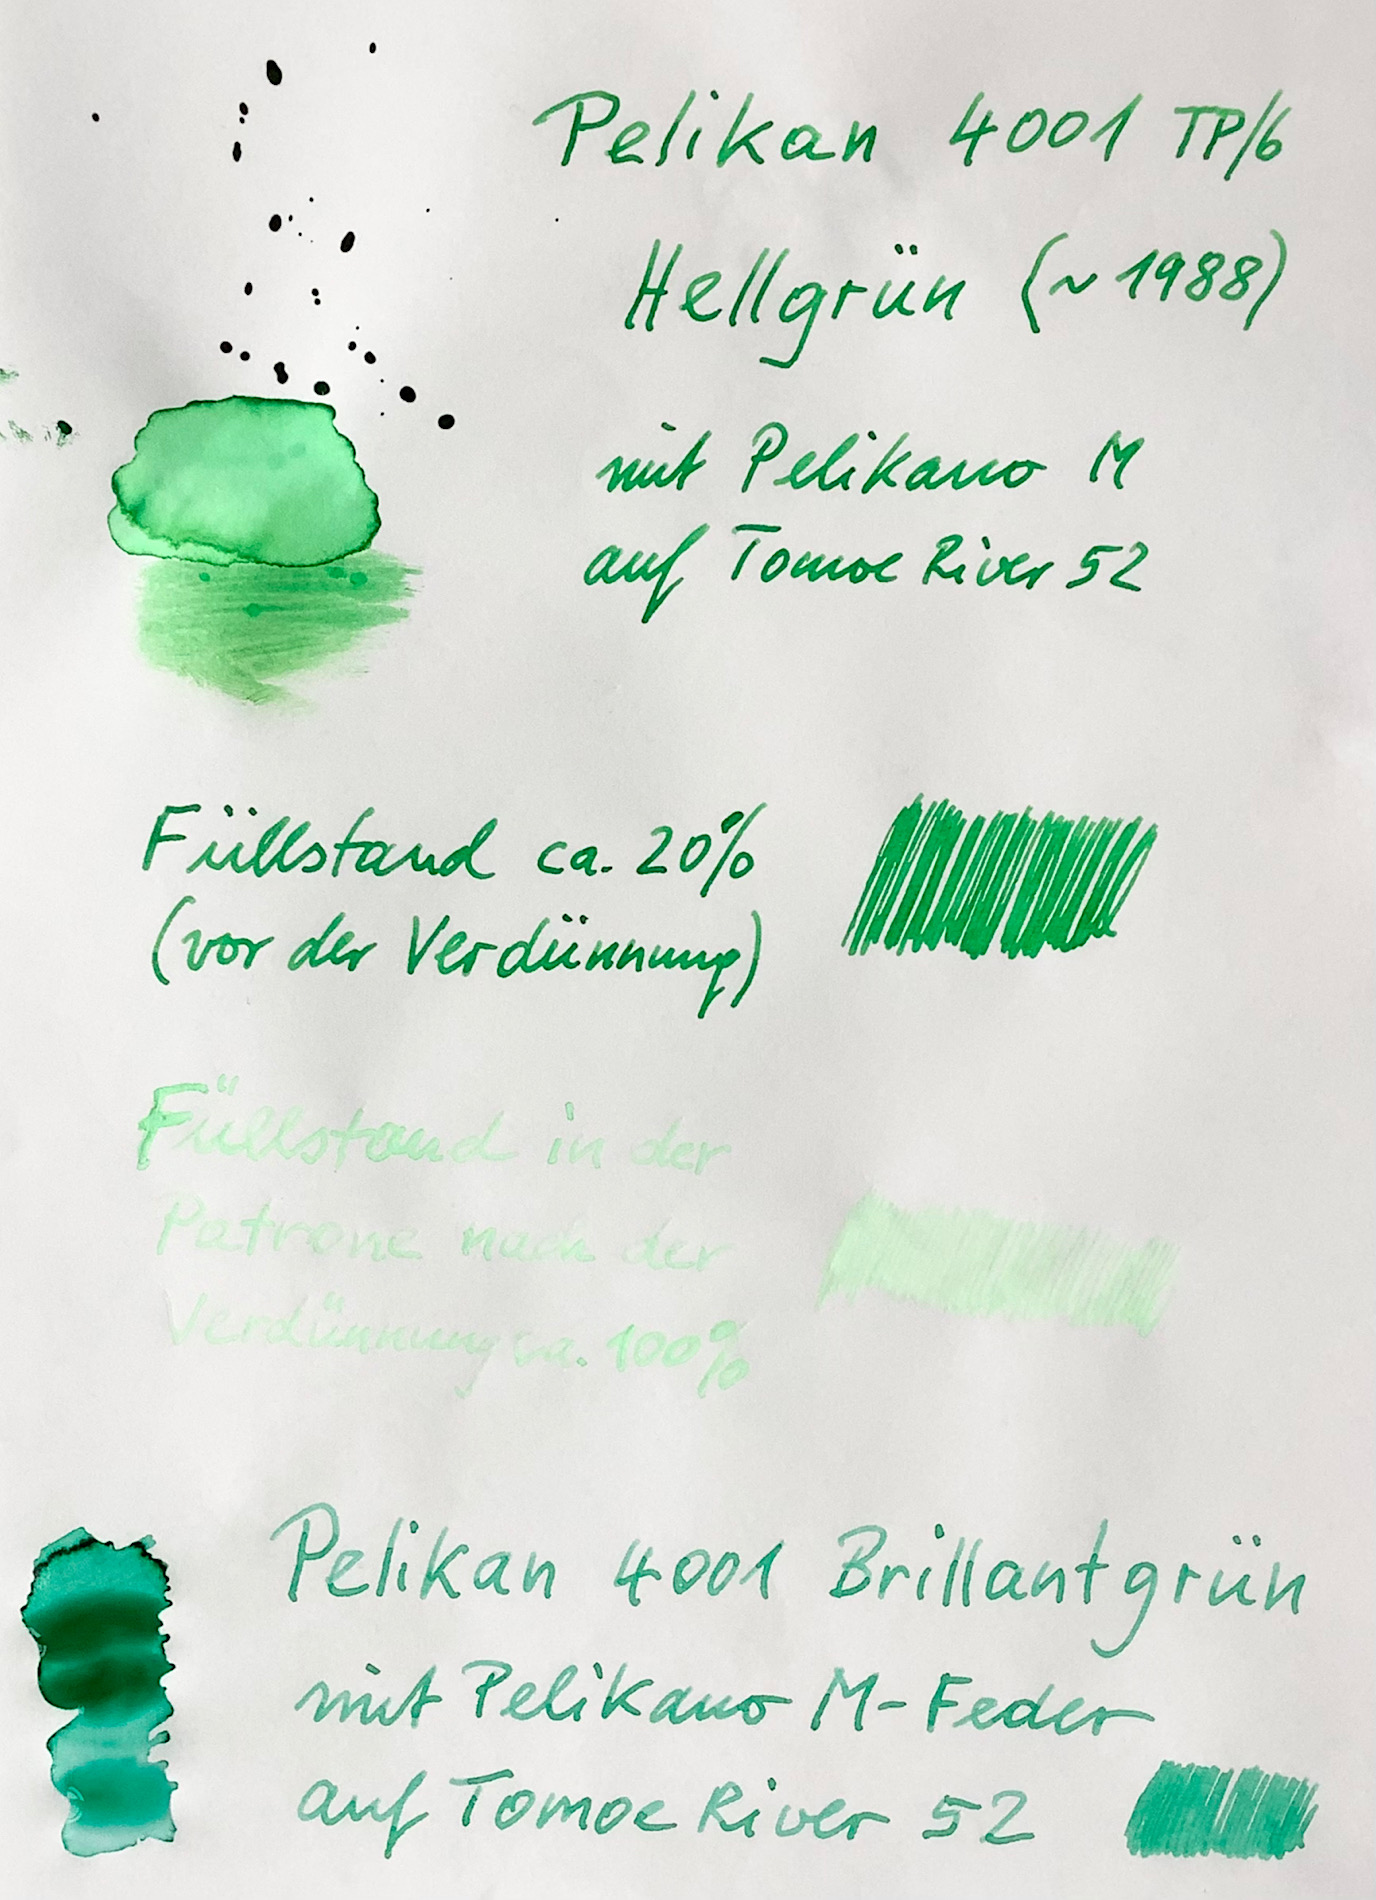 Pelikan 4001 TP/6
Hellgrün (~1988)
mit Pelikano M
auf Tomoe River 52
Füllstand ca. 20%
(vor der Verdünnung)
Füllstand in der
Patrone nach der
Verdünnung ca. 100%
Pelikan 4001 Brillantgrün
mit Pelikano M-Feder
auf Tomoe River 52